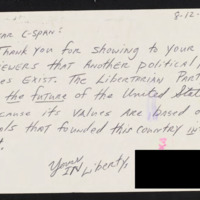 8-12-
EAR C-SPAN:
THANK YOU FOR SHOWING TO YOUR
IEWERS THAT ANOTHER POLITICAL
ES EXIST. THE LIBERTARIAN PART
THE future OF THE UNITED STAT
CAUSE ITS VALUES ARE BASED O
LS THAT FOUNDED THIS COUNTRY
Yours
IN Liberty,